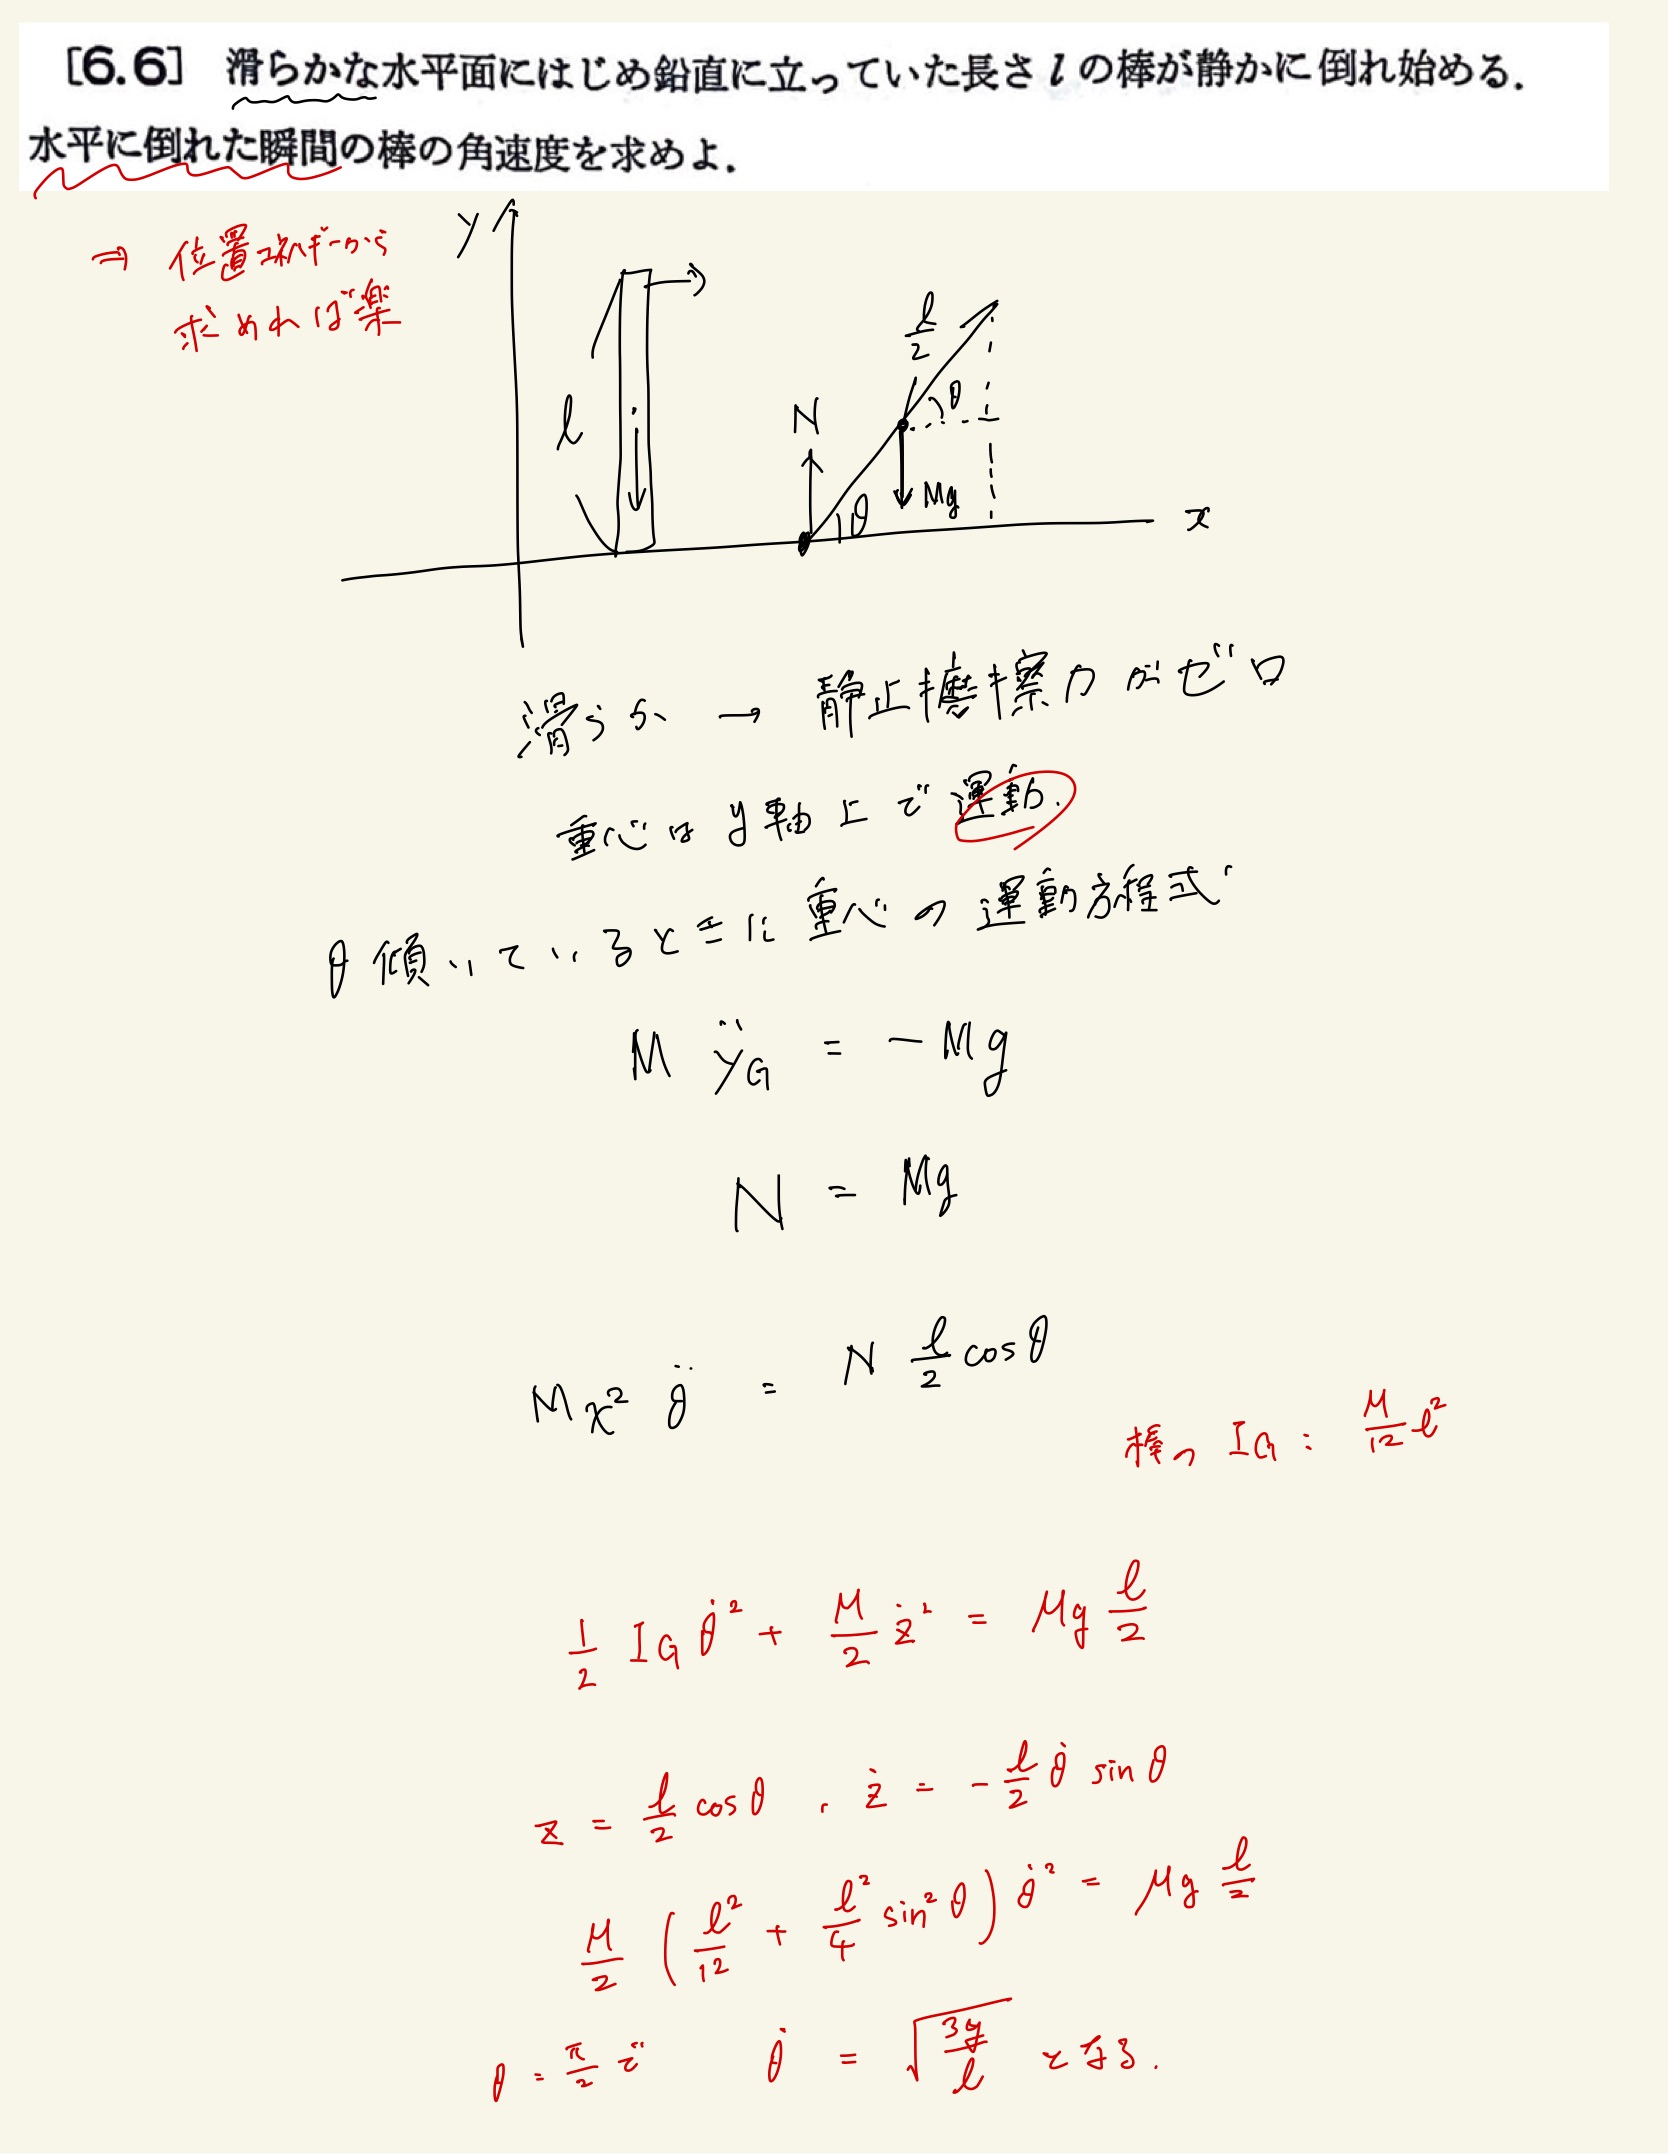 [6.6] 滑らかな水平面にはじめ鉛直に立っていた長さ l の棒が静かに倒れ始める.
水平に倒れた瞬間の棒の角速度を求めよ.
⇒ 位置エネルギーから
求めれば楽
y
l
N
l/2
θ
θ
Mg
x
滑らか → 静止摩擦力がゼロ
重心は y軸上で運動.
θ傾いているときに重心の運動方程式
M ÿ_G = - Mg
N = Mg
M x² θ̈ = N l/2 cosθ
棒の I_G : M/12 l²
1/2 I_G θ̇² + M/2 ż² = Mg l/2
z = l/2 cosθ , ż = - l/2 θ̇ sinθ
M/2 ( l²/12 + l²/4 sin²θ ) θ̇² = Mg l/2
θ = π/2 で θ̇ = √(3g/l) となる.